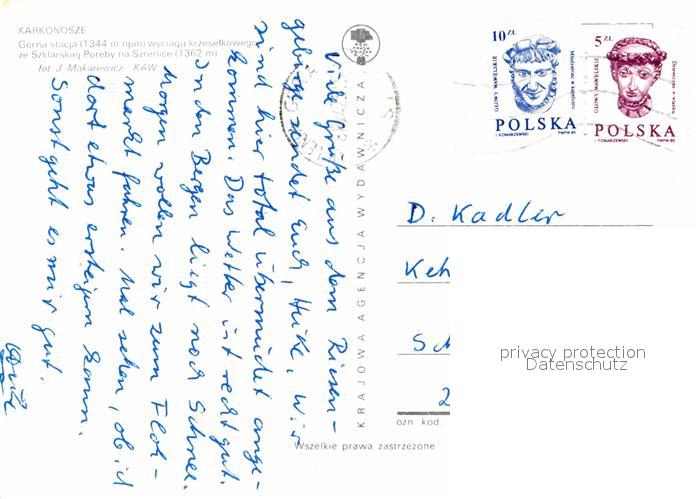 KARKONOSZE
Górna stacja (1344 m npm) wyciągu krzesełkowego
ze Szklarskiej Poręby na Szrenicę (1362 m)
fot. J. Makarewicz - KAW
Viele Grüße aus dem Riesen-
gebirge sendet Euch, Heike. Wir
sind hier total übermüdet ange-
kommen. Das Wetter ist recht gut.
In den Bergen liegt noch Schnee.
Morgen wollen wir zum Floh-
markt fahren. Mal sehen, ob ich
dort etwas ersteigern kann.
Sonst geht es mir gut.
KRAJOWA AGENCJA WYDAWNICZA
10 ZŁ
GŁOWY WAWELSKIE
POLSKA
T. KONARZEWSKI
PWPW 85
5 ZŁ
GŁOWY WAWELSKIE
Dziewczyna w wianku
POLSKA
T. KONARZEWSKI
PWPW 85
D. Kadler
Keh
Sch
2
ozn kod.
Wszelkie prawa zastrzeżone
privacy protection
Datenschutz